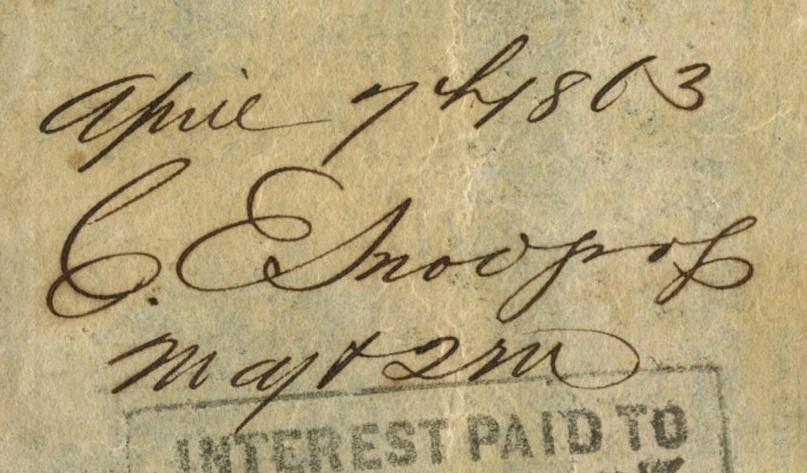 April 7th 1863
C. E Snodgrass
Maj & QM
INTEREST PAID TO